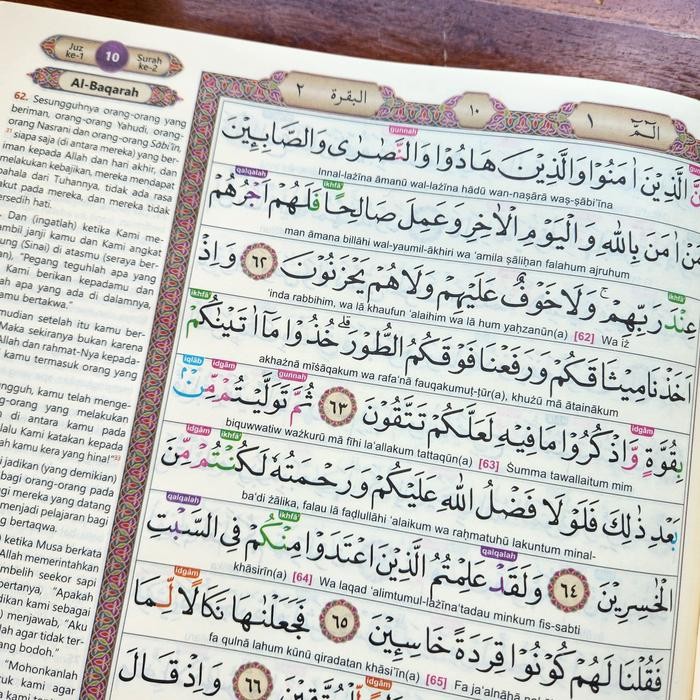 Juz ke-1
10
Surah ke-2
Al-Baqarah
62. Sesungguhnya orang-orang yang
beriman, orang-orang Yahudi, orang-
orang Nasrani dan orang-orang Sābi'īn,
siapa saja (di antara mereka) yang ber-
iman kepada Allah dan hari akhir, dan
melakukan kebajikan, mereka mendapat
pahala dari Tuhannya, tidak ada rasa
takut pada mereka, dan mereka tidak
bersedih hati.
Dan (ingatlah) ketika Kami me-
ambil janji kamu dan Kami angkat
(Sinai) di atasmu (seraya ber-
"Pegang teguhlah apa yang
Kami berikan kepadamu dan
apa yang ada di dalamnya,
kamu bertakwa."
mudian setelah itu kamu ber-
Maka sekiranya bukan karena
Allah dan rahmat-Nya kepada-
kamu termasuk orang yang
sungguh, kamu telah menge-
orang yang melakukan
di antara kamu pada
lalu Kami katakan kepada
kamu kera yang hina!"
jadikan (yang demikian)
bagi orang-orang pada
bagi mereka yang datang
menjadi pelajaran bagi
bertaqwa.
ketika Musa berkata
Allah memerintahkan
sapi
"Apakah
kami sebagai
menjawab, "Aku
Allah agar tidak ter-
bodoh."
"Mohonkanlah
kami agar
البقرة ٢
١٠
الۤمّۤ ١
الَّذِيْنَ اٰمَنُوْا وَالَّذِيْنَ هَادُوْا وَالنَّصٰرٰى وَالصَّابِـِٕيْنَ
gunnah
Innal-lażīna āmanū wal-lażīna hādū wan-naṣārā waṣ-ṣābi'īna
مَنْ اٰمَنَ بِاللّٰهِ وَالْيَوْمِ الْاٰخِرِ وَعَمِلَ صَالِحًا فَلَهُمْ اَجْرُهُمْ
ikhfā' qalqalah
man āmana billāhi wal-yaumil-ākhiri wa 'amila ṣāliḥan falahum ajruhum
عِنْدَ رَبِّهِمْۚ وَلَا خَوْفٌ عَلَيْهِمْ وَلَا هُمْ يَحْزَنُوْنَ ٦٢ وَاِذْ
ikhfā'
'inda rabbihim, wa lā khaufun 'alaihim wa lā hum yaḥzanūn(a) [62] Wa iż
اَخَذْنَا مِيْثَاقَكُمْ وَرَفَعْنَا فَوْقَكُمُ الطُّوْرَۗ خُذُوْا مَآ اٰتَيْنٰكُمْ
ikhfā'
akhażnā mīṡāqakum wa rafa'nā fauqakumuṭ-ṭūr(a), khużū mā ātainākum
بِقُوَّةٍ وَّاذْكُرُوْا مَا فِيْهِ لَعَلَّكُمْ تَتَّقُوْنَ ٦٣ ثُمَّ تَوَلَّيْتُمْ مِّنْۢ
idgām gunnah idgām iqlāb
biquwwatiw ważkurū mā fīhi la'allakum tattaqūn(a) [63] Ṡumma tawallaitum mim
بَعْدِ ذٰلِكَ فَلَوْلَا فَضْلُ اللّٰهِ عَلَيْكُمْ وَرَحْمَتُهٗ لَكُنْتُمْ مِّنَ
ikhfā' idgām
ba'di żālika, falau lā faḍlullāhi 'alaikum wa raḥmatuhū lakuntum minal-
الْخٰسِرِيْنَ ٦٤ وَلَقَدْ عَلِمْتُمُ الَّذِيْنَ اعْتَدَوْا مِنْكُمْ فِى السَّبْتِ
qalqalah ikhfā' qalqalah
khāsirīn(a) [64] Wa laqad 'alimtumul-lażīna'tadau minkum fis-sabti
فَقُلْنَا لَهُمْ كُوْنُوْا قِرَدَةً خَاسِـِٕيْنَ ٦٥ فَجَعَلْنٰهَا نَكَالًا لِّمَا
idgām
fa qulnā lahum kūnū qiradatan khāsi'īn(a) [65] Fa ja'alnāhā
٦٦ وَاِذْ قَالَ
idgām